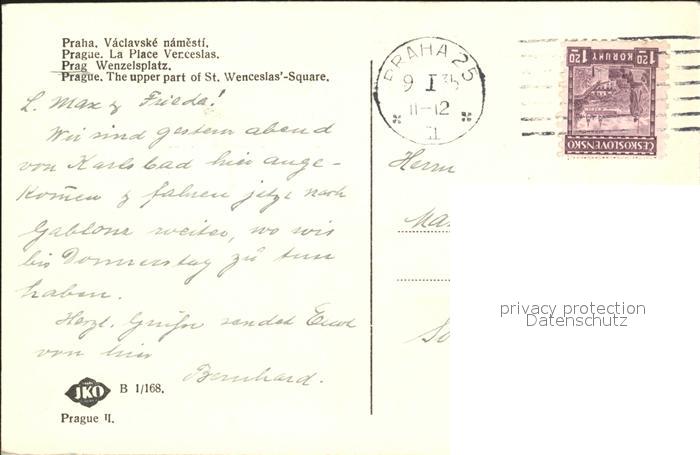 Praha. Václavské náměstí.
Prague. La Place Venceslas.
Prag Wenzelsplatz.
Prague. The upper part of St. Wenceslas'-Square.
L. Max & Frieda!
Wir sind gestern abend
von Karlsbad hier ange-
kom̄en & fahren jetzt nach
Gablonz weiter, wo wir
bis Donnerstag zu tun
haben.
Herzl. Grüße sendet Euch
von hier
Bernhard.
JKO
B 1/168.
Prague II.
PRAHA 25
9 I 35
11-12
1.20 KORUNY 1.20
ČESKOSLOVENSKO
Herrn
privacy protection
Datenschutz